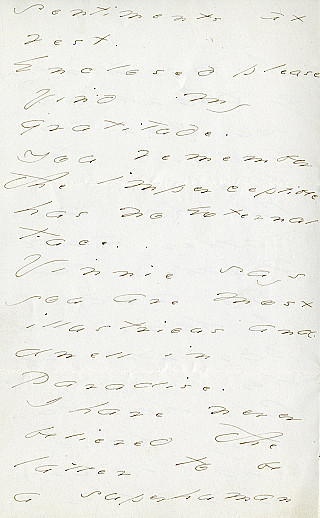 sentiments at
rest.
Enclosed please
find my
gratitude.
You remember
the imperceptible
has no external
Face.
Vinnie says
you are most
illustrious and
dwell in
Paradise.
I have never
believed the
latter to be
a superhuman